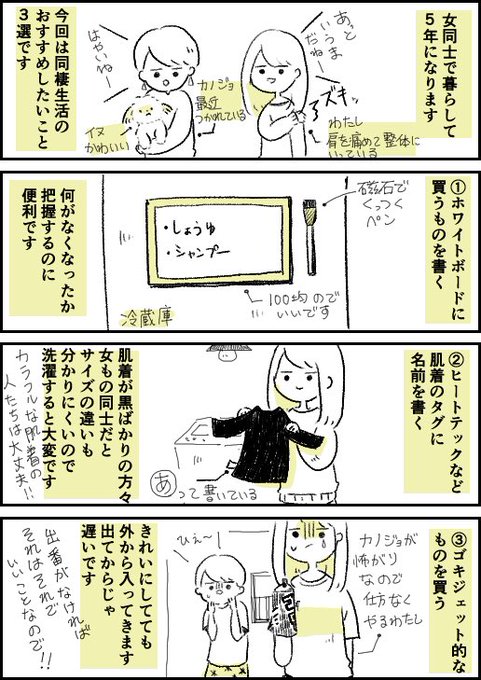 女同士で暮らして
5年になります
あっと
いうま
だねー
はやいねー
ズキッ
わたし
肩を痛めて整体に
いっている
カノジョ
最近
つかれている
イヌ
かわいい
今回は同棲生活の
おすすめしたいこと
3選です
①ホワイトボードに
買うものを書く
磁石で
くっつく
ペン
・しょうゆ
・シャンプー
100均ので
いいです
冷蔵庫
何がなくなったか
把握するのに
便利です
②ヒートテックなど
肌着のタグに
名前を書く
あって書いている
肌着が黒ばかりの方々
女もの同士だと
サイズの違いも
分かりにくいので
洗濯すると大変です
カラフルな肌着の
人たちは大丈夫!!
③ゴキジェット的な
ものを買う
カノジョが
怖がり
なので
仕方なく
やるわたし
ひぇ〜
きれいにしてても
外から入ってきます
出てからじゃ
遅いです
出番がなければ
それはそれで
いいことなので!!